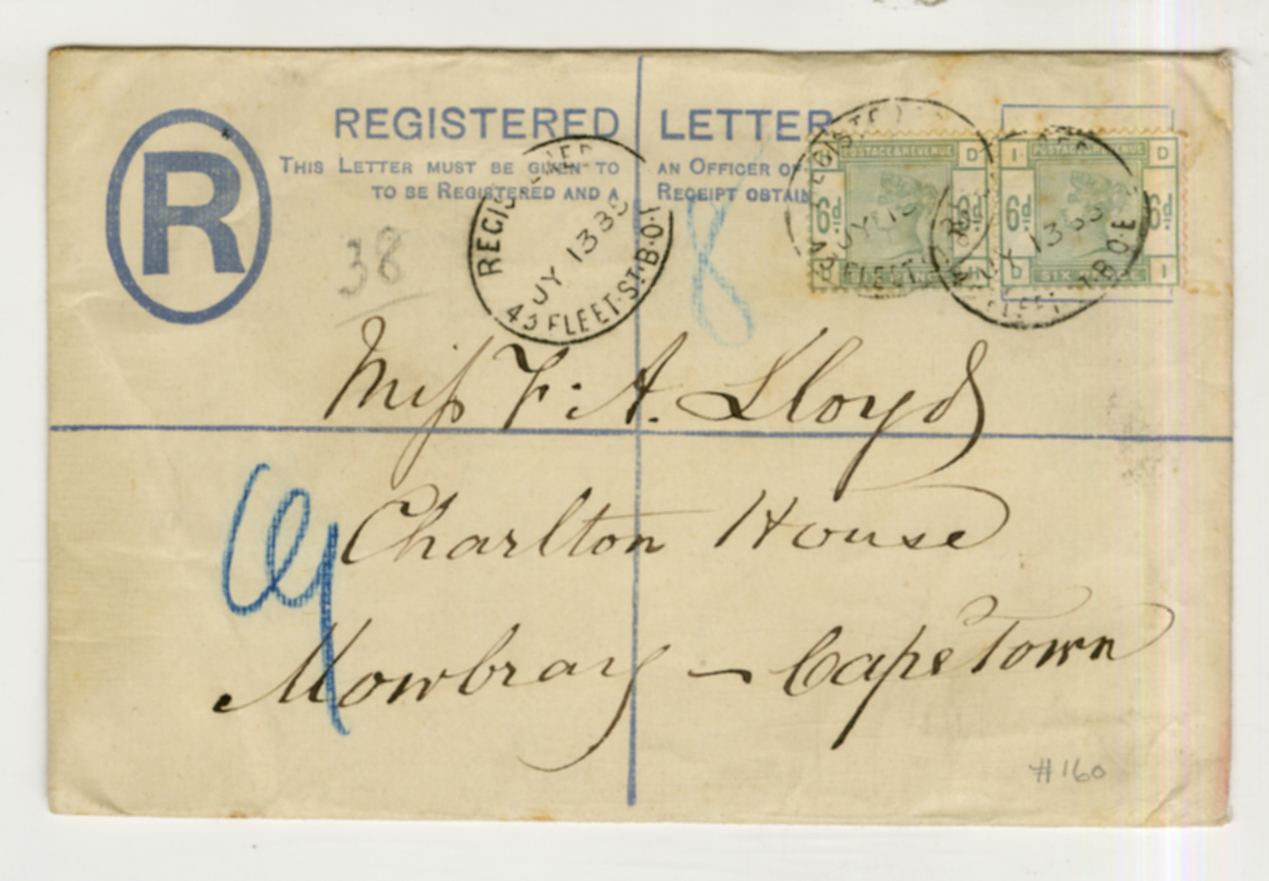 REGISTERED LETTER
THIS LETTER MUST BE GIVEN TO AN OFFICER OF
TO BE REGISTERED AND A RECEIPT OBTAIN
R
38
8
REGISTERED
JY 13 8
43 FLEET·ST·B·O·
POSTAGE & REVENUE
D
6d.
SIX PENCE
I D
6d. 6d.
SIX PENCE
I
JY 13 8
FLEET ST B·O·E
Miss F. A. Lloyd
Charlton House
Mowbray – Cape Town
#160